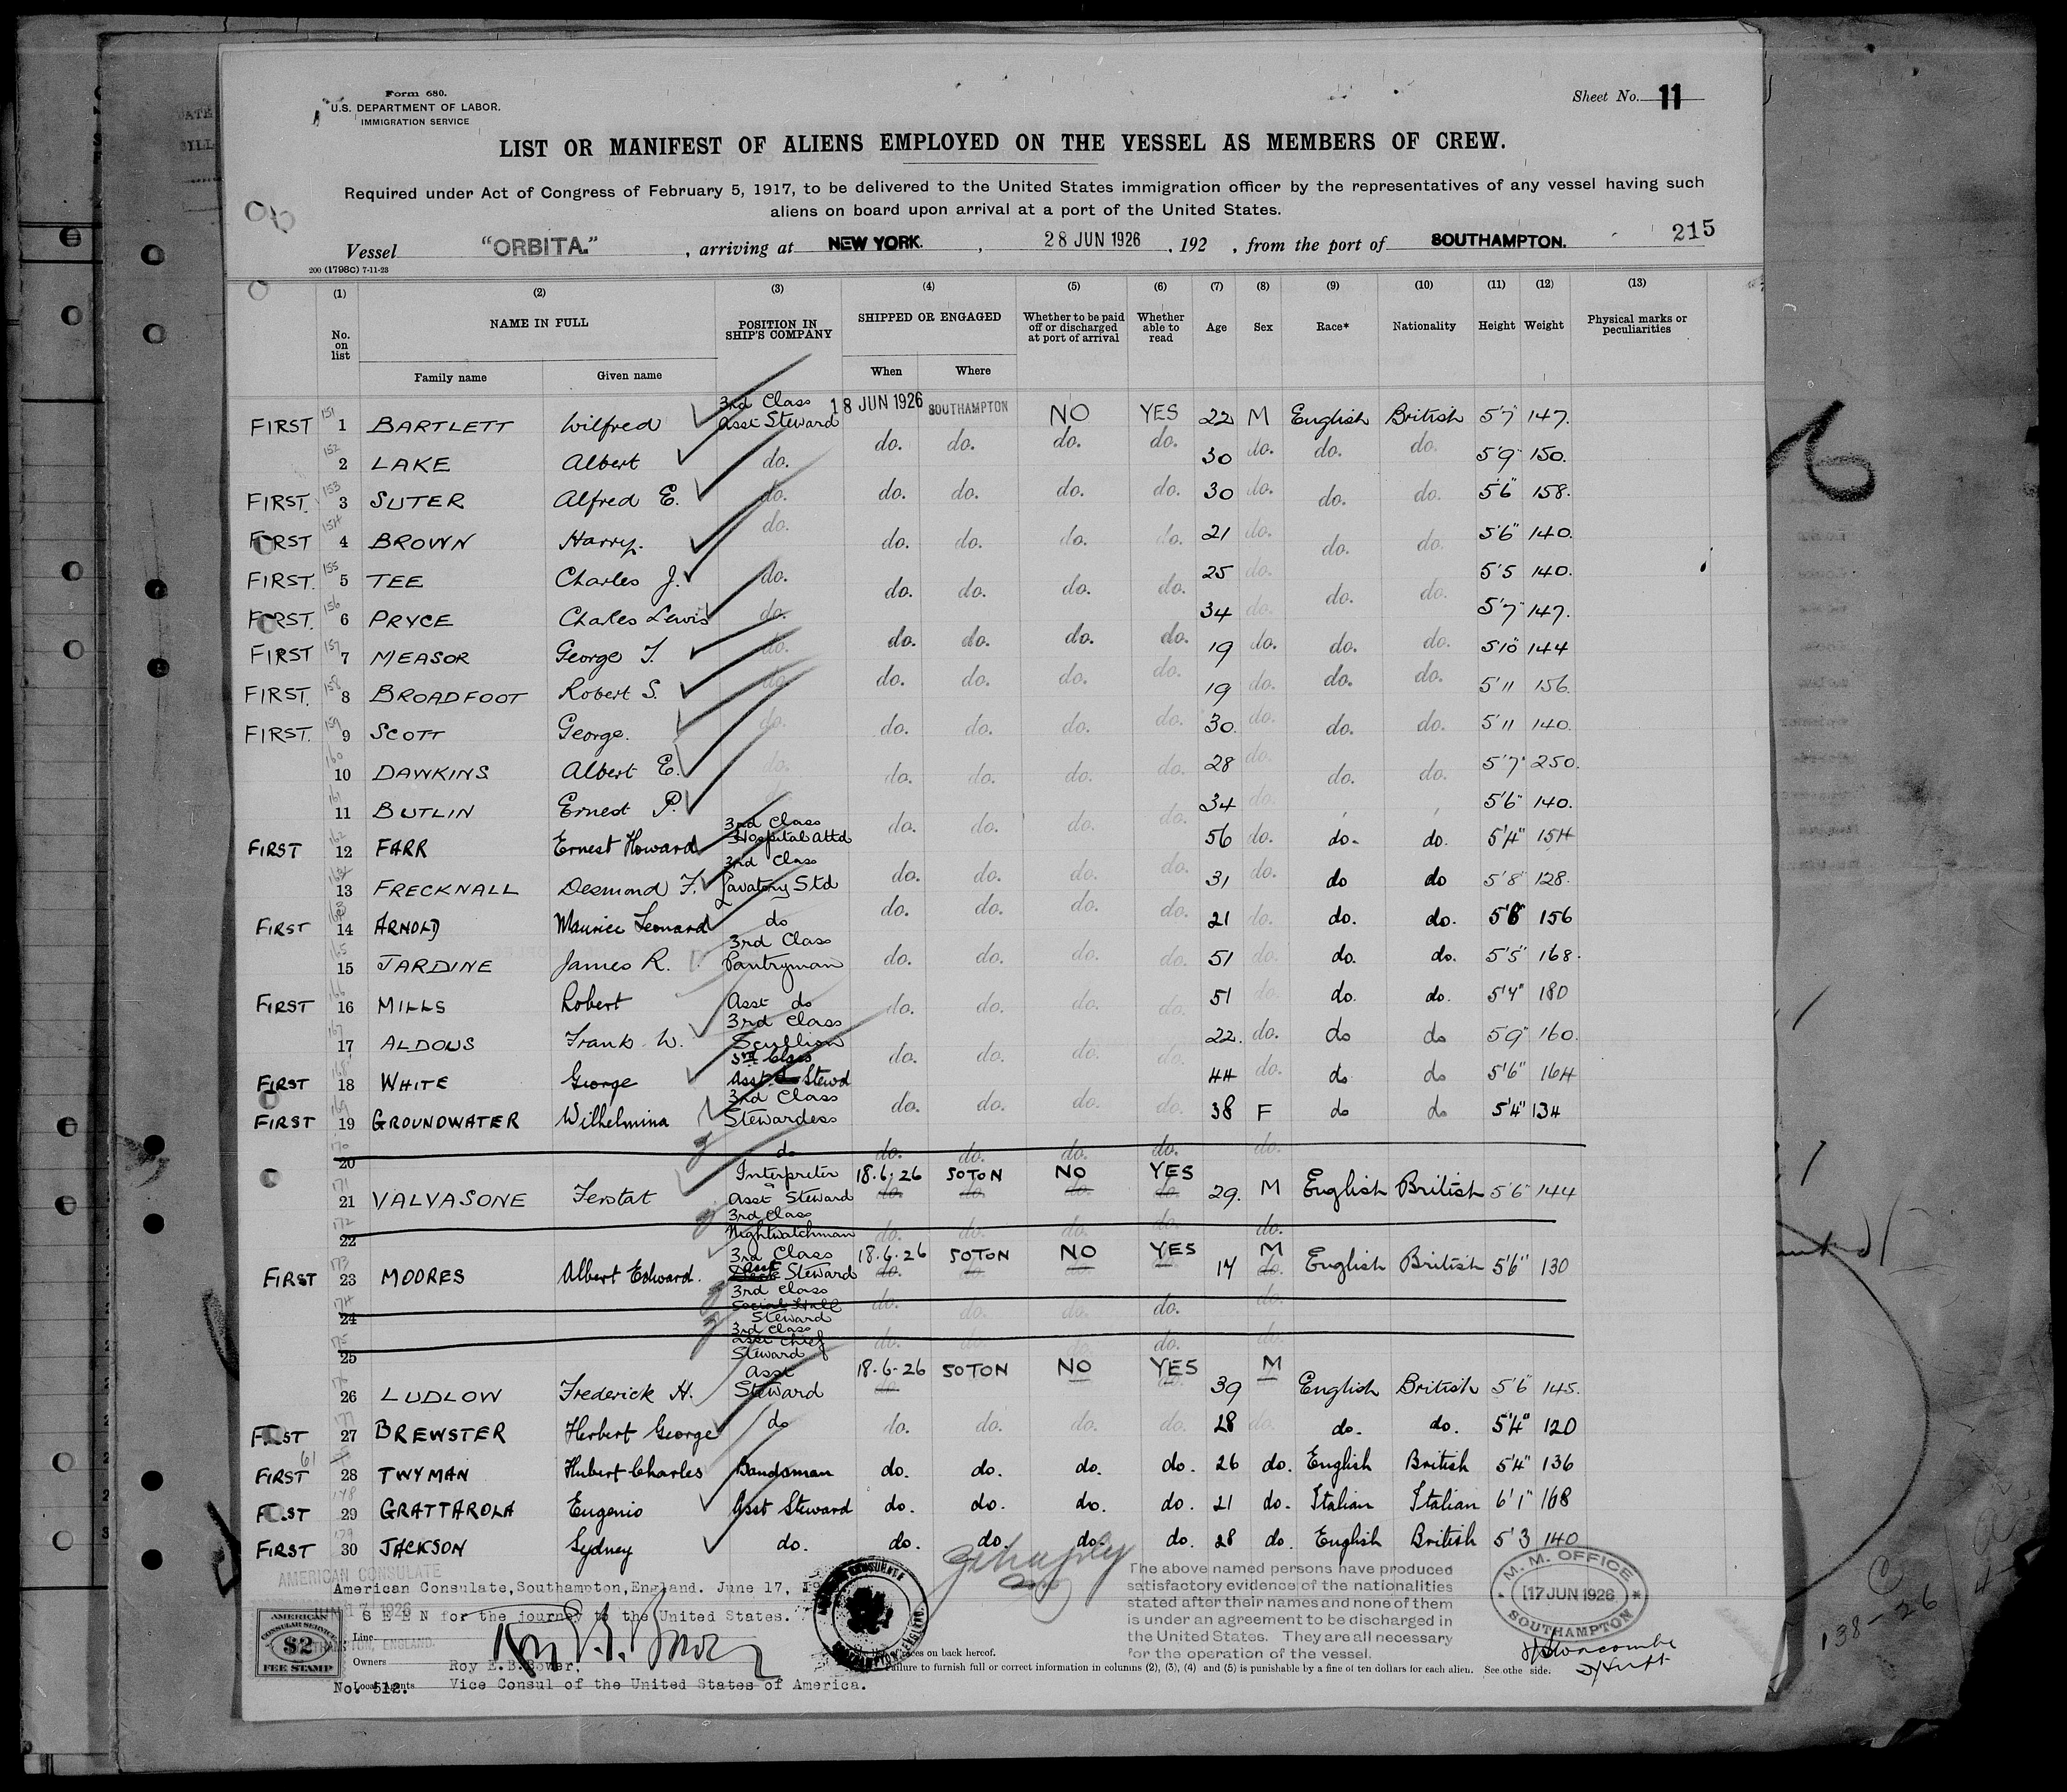 Form 680.
U.S. DEPARTMENT OF LABOR.
IMMIGRATION SERVICE
Sheet No. 11
LIST OR MANIFEST OF ALIENS EMPLOYED ON THE VESSEL AS MEMBERS OF CREW.
Required under Act of Congress of February 5, 1917, to be delivered to the United States immigration officer by the representatives of any vessel having such
aliens on board upon arrival at a port of the United States.
215
Vessel "ORBITA." , arriving at NEW YORK. , 28 JUN 1926 , 192 , from the port of SOUTHAMPTON.
200 (1798C) 7-11-23
(1) (2) (3) (4) (5) (6) (7) (8) (9) (10) (11) (12) (13)
No. on list NAME IN FULL POSITION IN SHIP'S COMPANY SHIPPED OR ENGAGED Whether to be paid off or discharged at port of arrival Whether able to read Age Sex Race* Nationality Height Weight Physical marks or peculiarities
Family name Given name When Where
FIRST 151 1 BARTLETT Wilfred 3rd Class Asst Steward 18 JUN 1926 SOUTHAMPTON NO YES 22 M English British 5'7" 147.
152 2 LAKE Albert do. do. do. do. do. 30 do. do. do. 5'9" 150.
FIRST. 153 3 SUTER Alfred E. do. do. do. do. do. 30 do. do. do. 5'6" 158.
FIRST 154 4 BROWN Harry. do. do. do. do. do. 21 do. do. do. 5'6" 140.
FIRST. 155 5 TEE Charles J. do. do. do. do. do. 25 do. do. do. 5'5 140.
FIRST. 156 6 PRYCE Charles Lewis do. do. do. do. do. 34 do. do. do. 5'7" 147.
FIRST 157 7 MEASOR George T. do. do. do. do. do. 19 do. do. do. 5'10" 144
FIRST. 158 8 BROADFOOT Robert S. do. do. do. do. do. 19 do. do. do. 5'11 156.
FIRST. 159 9 SCOTT George. do. do. do. do. do. 30. do. do. do. 5'11 140.
160 10 DAWKINS Albert E. do. do. do. do. do. 28 do. do. do. 5'7" 250.
161 11 BUTLIN Ernest P. 34 do. 5'6" 140.
FIRST 162 12 FARR Ernest Howard 3rd Class Hospital Attd do. do. do. do. 56 do. do. do. 5'4" 154
13 FRECKNALL Desmond F. 3rd Class Lavatory Std do. do. do. do. 31 do. do do 5'8" 128.
FIRST 14 ARNOLD Maurice Leonard do do. do. do. do. 21 do. do. do. 5'8" 156
165 15 JARDINE James R. 3rd Class Pantryman do. do. do. do. 51 do. do. do. 5'5" 168.
FIRST 166 16 MILLS Robert Asst do do. do. do. do. 51 do. do. do. 5'4" 180
167 17 ALDOUS Frank W. 3rd Class Scullion 22. do. do do 5'9" 160.
FIRST 168 18 WHITE George 3rd Class Asst. Stewd do. do. do. do. 44 do. do do 5'6" 164
FIRST 169 19 GROUNDWATER Wilhelmina 3rd Class Stewardess do. do. do. do. 38 F do do 5'4" 134
170 20 do do. do. do. do. do.
171 21 VALVASONE Ferstat Interpreter & Asst Steward 18.6.26 SOTON NO YES 29. M English British 5'6" 144
172 22 3rd Class Nightwatchman do. do. do. do. do.
FIRST 173 23 MOORES Albert Edward. 3rd Class Asst Steward 18.6.26 SOTON NO YES 17 M English British 5'6" 130
174 24 3rd Class Social Hall Steward do. do. do. do. do.
175 25 3rd Class Asst Chief Steward do. do. do. do. do.
26 LUDLOW Frederick H. Asst Steward 18.6.26 SOTON NO YES 39 M English British 5'6" 145.
FIRST 177 27 BREWSTER Herbert George do do. do. do. do. 28 do. do. do. 5'4" 120
FIRST 61 28 TWYMAN Hubert Charles Bandsman do. do. do. do. 26 do. English British 5'4" 136
FIRST 178 29 GRATTAROLA Eugenio Asst Steward do. do. do. do. 21 do. Italian Italian 6'1" 168
FIRST 179 30 JACKSON Sydney do. do. do. do. do. 28 do. English British 5'3 140
AMERICAN CONSULATE
American Consulate, Southampton, England. June 17, 19
SEEN for the journey to the United States.
JUN 17 1926
AMERICAN
CONSULAR SERVICE
$2
FEE STAMP
Line
Owners
Roy E.B.Bower.
Local Agents
No. 512. Vice Consul of the United States of America.
The above named persons have produced
satisfactory evidence of the nationalities
stated after their names and none of them
is under an agreement to be discharged in
the United States. They are all necessary
for the operation of the vessel.
M. M. OFFICE
17 JUN 1926
SOUTHAMPTON
races on back hereof.
Failure to furnish full or correct information in columns (2), (3), (4) and (5) is punishable by a fine of ten dollars for each alien. See othe side.
138-26